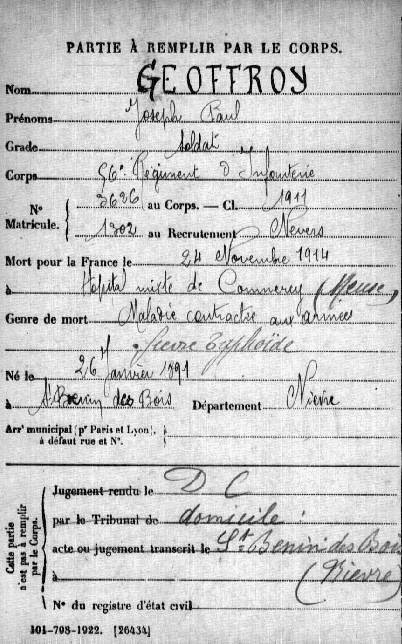 PARTIE À REMPLIR PAR LE CORPS.
Nom GEOFFROY
Prénoms Joseph Paul
Grade Soldat
Corps 56e Régiment d'Infanterie
N° Matricule. { 3626 au Corps. — Cl. 1911
1302 au Recrutement Nevers
Mort pour la France le 24 Novembre 1914
à Hôpital mixte de Commercy (Meuse)
Genre de mort Maladie contractée aux armées
fièvre typhoïde
Né le 26 Janvier 1891
à St Benin des Bois Département Nièvre
Arrt municipal (pr Paris et Lyon),
à défaut rue et N°.
Cette partie n'est pas à remplir par le Corps.
Jugement rendu le D C
par le Tribunal de domicile :
acte ou jugement transcrit le St Benin des Bois
à (Nièvre)
N° du registre d'état civil
101-708-1922. [26434]